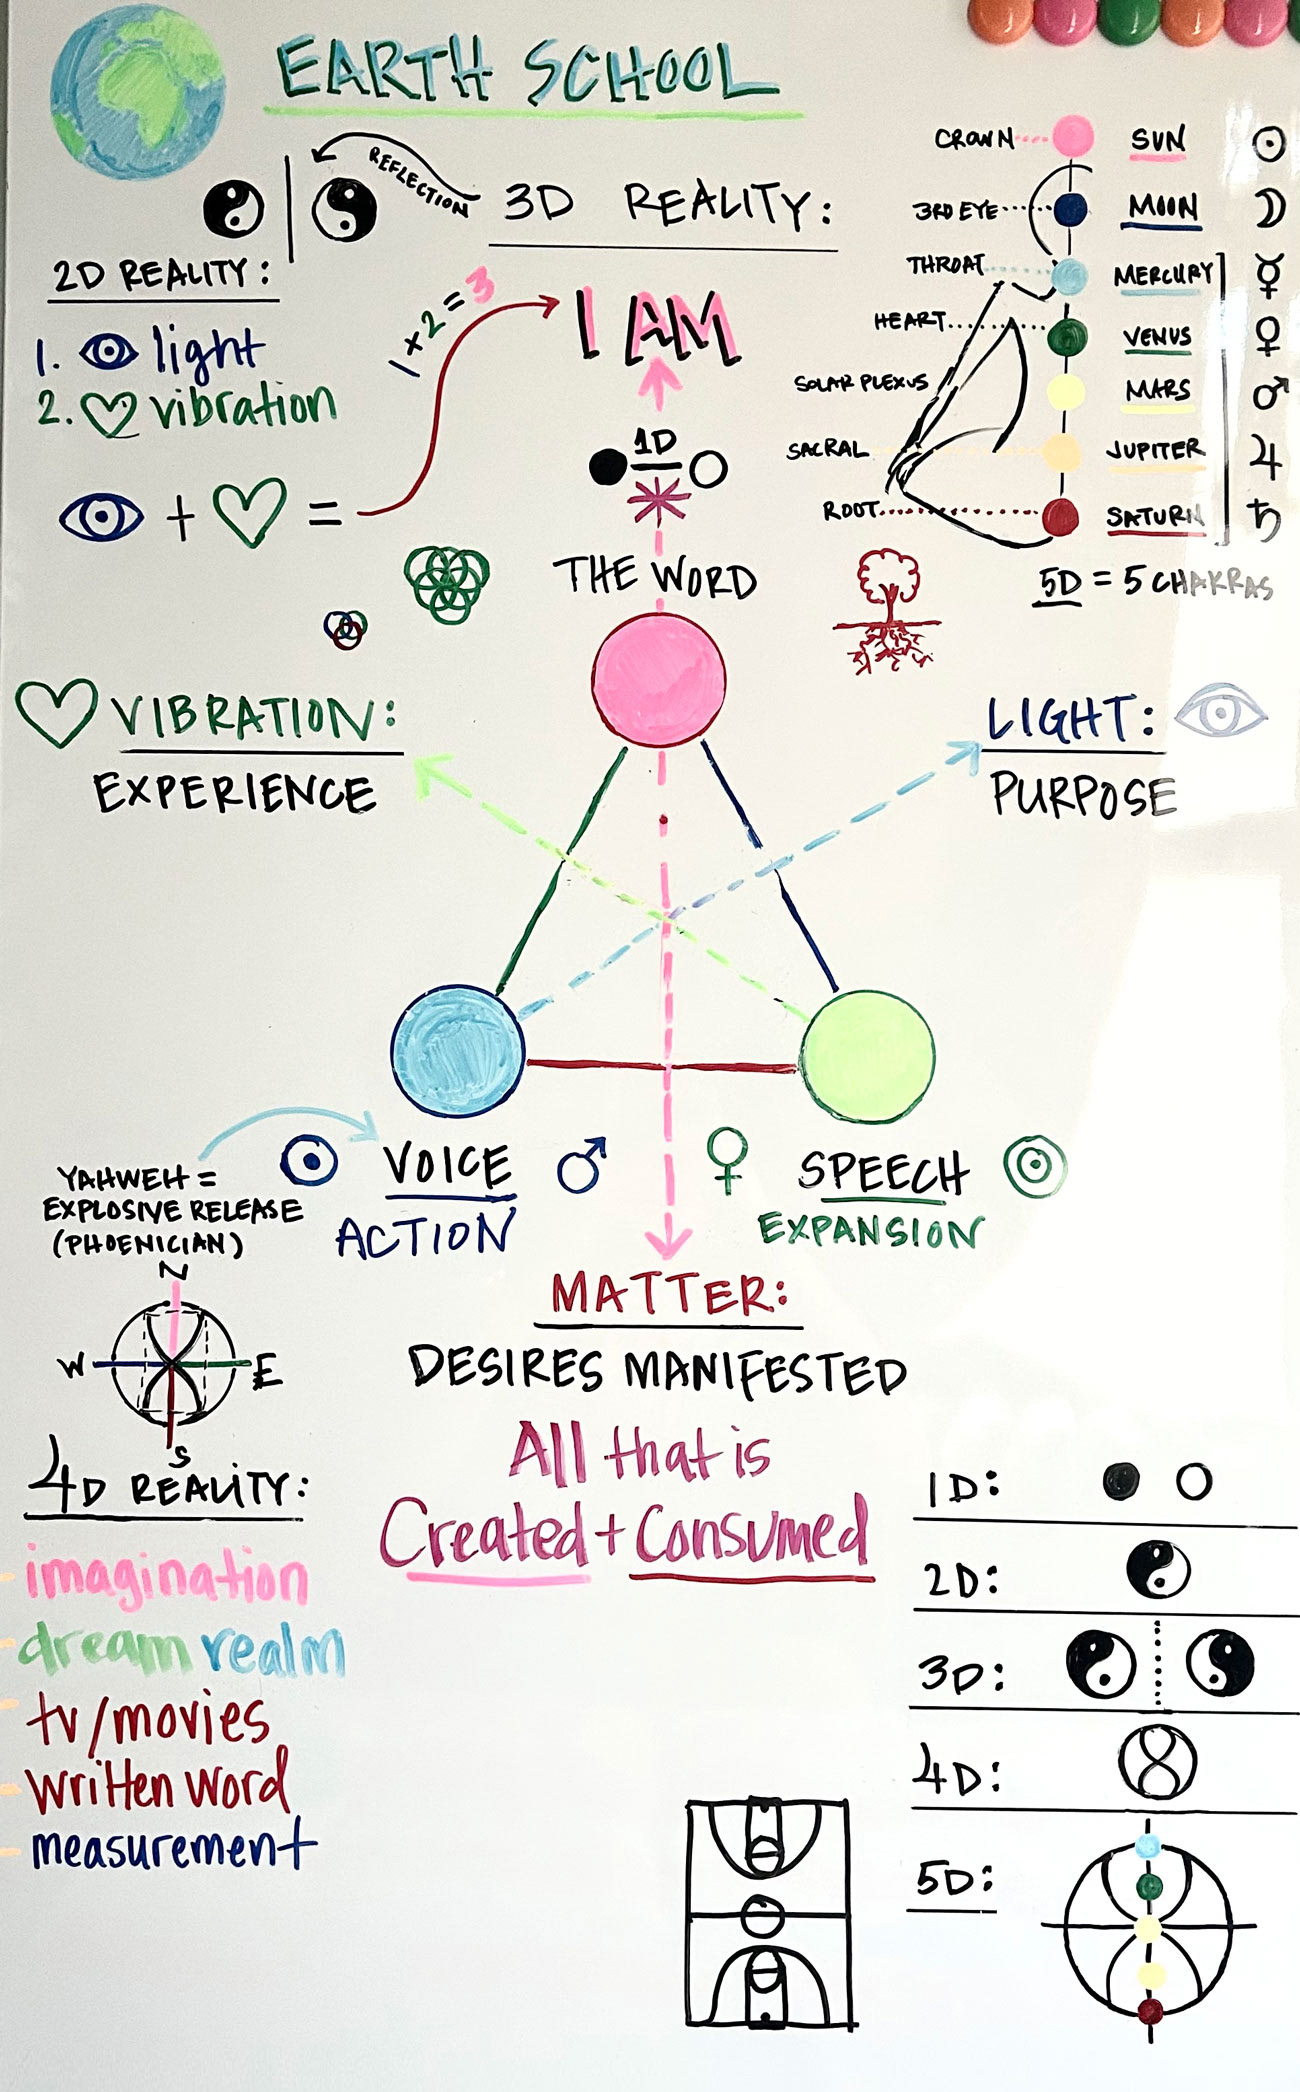 EARTH SCHOOL
REFLECTION
3D REALITY:
2D REALITY:
1. light
2. vibration
+ =
1+2=3
I AM
1D
THE WORD
CROWN SUN
3RD EYE MOON
THROAT MERCURY
HEART VENUS
SOLAR PLEXUS MARS
SACRAL JUPITER
ROOT SATURN
5D = 5 CHAKRAS
VIBRATION:
EXPERIENCE
LIGHT:
PURPOSE
YAHWEH =
EXPLOSIVE RELEASE
(PHOENICIAN)
VOICE
ACTION
SPEECH
EXPANSION
N
W E
S
MATTER:
DESIRES MANIFESTED
All that is
Created + Consumed
4D REALITY:
- imagination
- dream realm
- tv/movies
- written word
- measurement
1D:
2D:
3D:
4D:
5D: